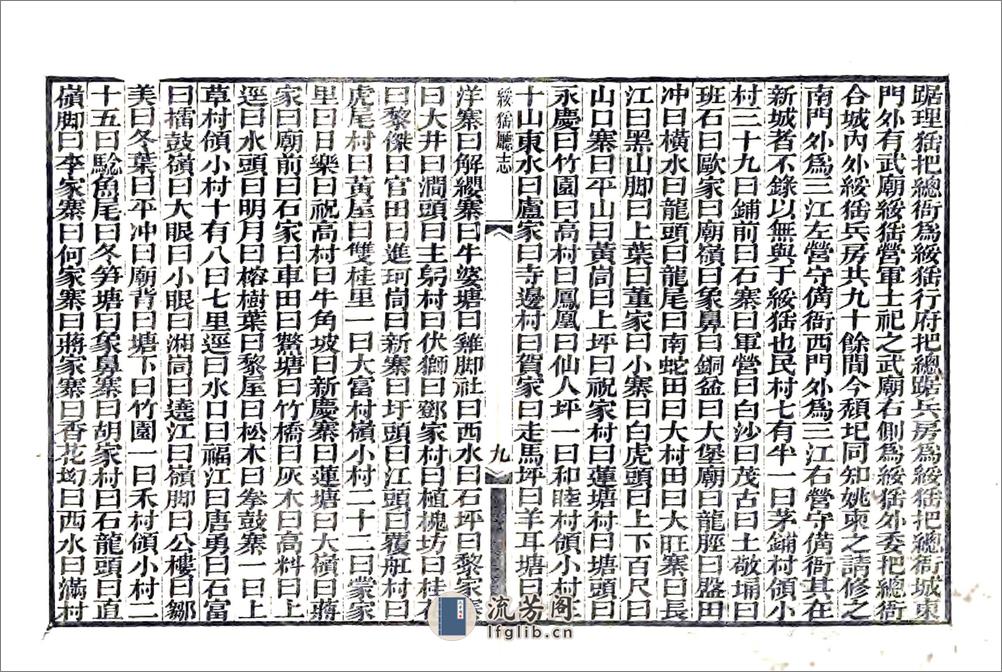 踞理猺把總衙爲綏猺行府把總踞兵房爲綏猺把總衙城東
門外有武廟綏猺營軍士祀之武廟右側爲綏猺外委把總衙
合城內外綏猺兵房共九十餘間今頹圮同知姚柬之請修之
南門外爲三江左營守備衙西門外爲三江右營守備衙其在
新城者不錄以無與于綏猺也民村七有半一曰茅鋪村領小
村二十九曰鋪前曰石寨曰軍營曰白沙曰茂古曰土敬埇曰
班石曰歐家曰廟嶺曰象鼻曰銅盆曰大堡廟曰龍脛曰盤田
冲曰橫水曰龍頭曰龍尾曰南蛇田曰大村田曰大旺寨曰長
江曰黑山脚曰上葉曰董家曰小寨曰白虎頭曰上下百尺曰
山口寨曰平山曰黃崗曰上坪曰祝家村曰蓮塘村曰塘頭曰
永慶曰竹園曰高村曰鳳凰曰仙人坪一曰和睦村領小村
十山東水曰盧家曰寺邊村曰賀家曰走馬坪曰羊耳塘曰
綏猺廳志
九
洋寨曰解纓寨曰牛婆塘曰雞脚社曰西水曰石坪曰黎家
曰大井曰澗頭曰主躬村曰伏獅曰鄧家村曰植槐坊曰桂
曰黎傑曰官田曰進珂峝曰新寨曰圩頭曰江頭曰覆舡村曰
虎尾村曰黃屋曰雙桂里一曰大富村嶺小村二十二曰黨家
里曰曰樂曰祝高村曰牛角坡曰新慶寨曰蓮塘曰大嶺曰蔣
家曰廟前曰石家曰車田曰鰲塘曰竹橋曰灰木曰高料曰上
逕曰水頭曰明月曰榕樹葉曰黎屋曰松木曰拳鼓寨一曰上
草村領小村十有八曰七里逕曰水口曰福江曰唐勇曰石富
曰擂鼓嶺曰大眼曰小眼曰湘峝曰遶江曰嶺脚曰公樓曰鄒
美曰冬葉曰平冲曰廟背曰塘下曰竹園一曰禾村領小村二
十五曰鯰魚尾曰冬笋塘曰象鼻寨曰胡家村曰石龍頭曰直
嶺脚曰李家寨曰何家寨曰蔣家寨曰香花㘭曰西水曰滿村
流芳阁
lfglib.cn